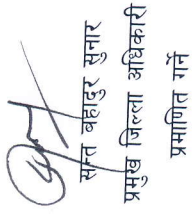 सन्त बहादुर सुनार
प्रमुख जिल्ला अधिकारी
प्रमाणित गर्ने